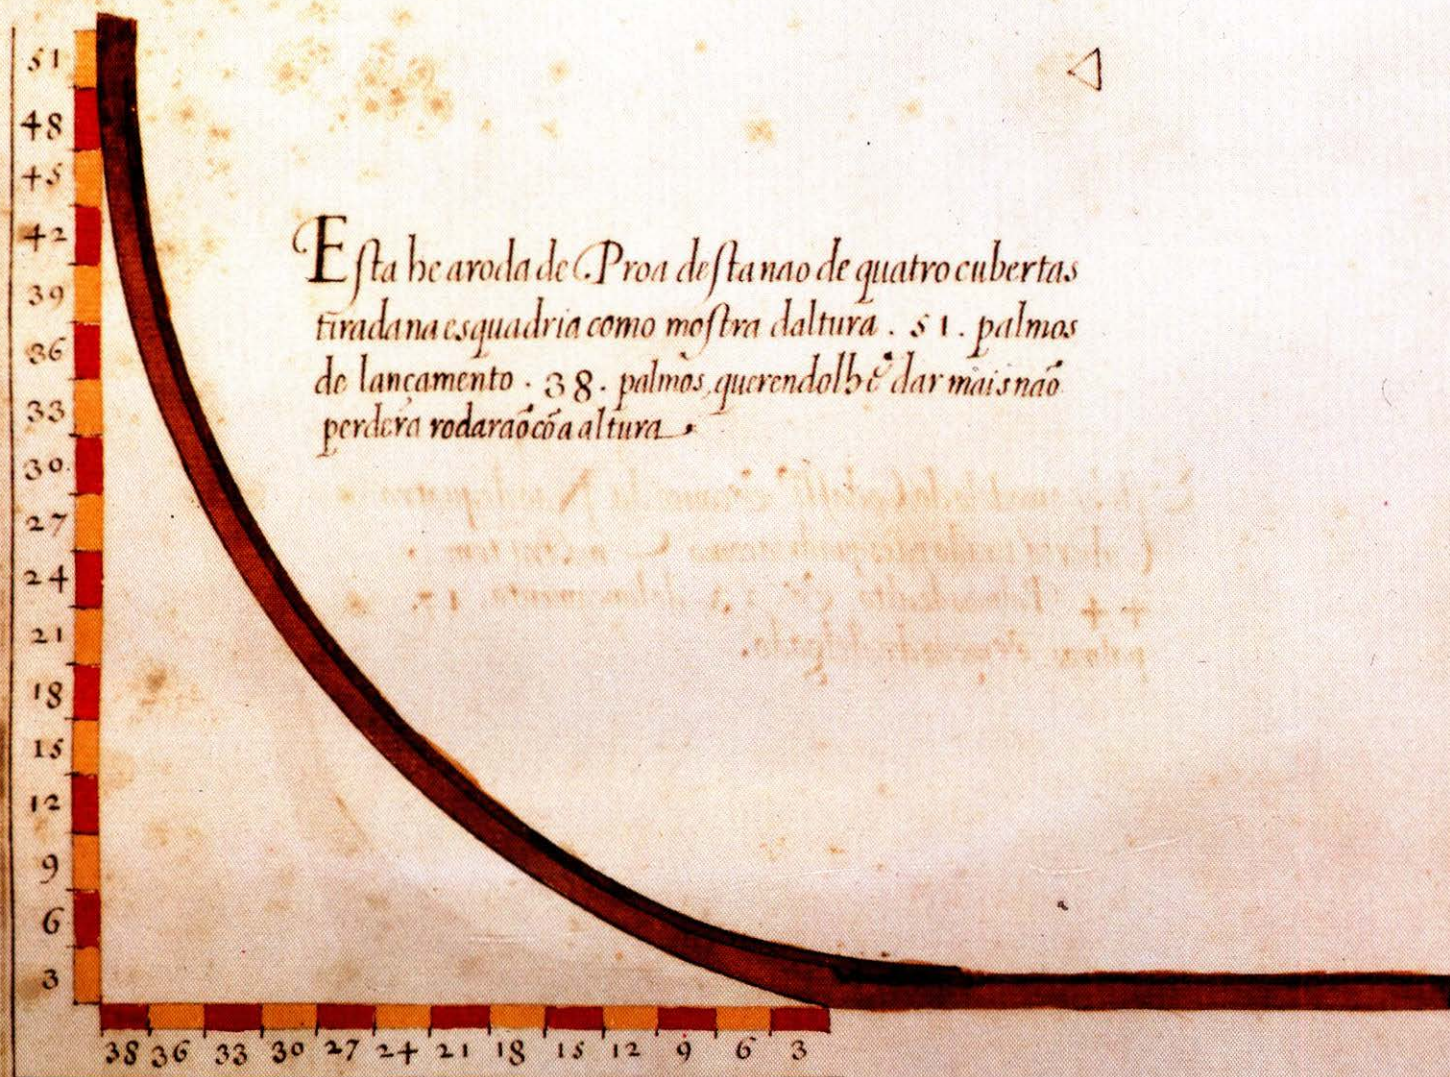 51
48
45
42
39
36
33
30.
27
24
21
18
15
12
9
6
3
Esta he aroda de Proa desta nao de quatro cubertas
tirada na esquadria como mostra daltura . 51 . palmos
de lançamento . 38 . palmos, querendolhe dar mais não
perderá rodaraõ cõ a altura
38 36 33 30 27 24 21 18 15 12 9 6 3